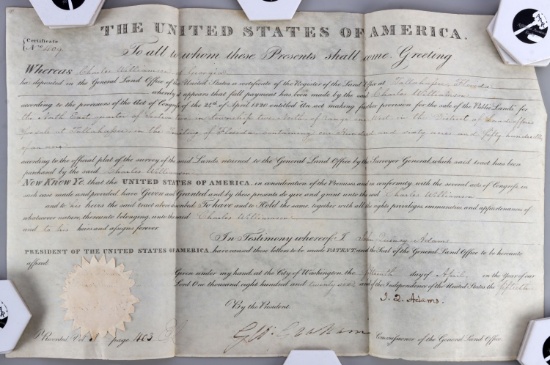 THE UNITED STATES OF AMERICA.
Certificate
To all to whom these Presents shall come Greeting
WHEREAS Charles Williamson
has deposited in the General Land Office of the United States a certificate of the Register of the Land Office at Tallahassee Florida
whereby it appears that full payment has been made by the said Charles Williamson
according to the provisions of the Act of Congress of the 24th of April 1820 entitled An act making further provision for the sale of the Public Lands for
the North East quarter of Section in township two North of range West in the District of Lands Offered for
Sale at Tallahassee in the Territory of Florida containing one Hundred and sixty acres and fifty hundredths
according to the official plat of the survey of the said Lands returned to the General Land Office by the Surveyor General, which said tract has been
purchased by the said Charles Williamson
NOW KNOW YE that the UNITED STATES OF AMERICA, in consideration of the Premises and in conformity with the several acts of Congress in
such case made and provided Have Given and Granted and by these presents do give and grant unto the said Charles Williamson
and to his heirs the said tract above described: To have and to Hold the same together with all the rights, privileges, immunities and appurtenances of
whatsoever nature, thereunto belonging, unto the said Charles Williamson
and to his heirs and assigns forever
In Testimony whereof I John Quincy Adams
PRESIDENT OF THE UNITED STATES OF AMERICA, have caused these letters to be made PATENT and the Seal of the General Land Office to be hereunto
affixed
Given under my hand at the City of Washington, the day of April in the Year of our
Lord One thousand eight hundred and twenty and of the Independence of the United States the
By the President J. Q. Adams
Geo. Graham Commissioner of the General Land Office
Recorded Vol page 403